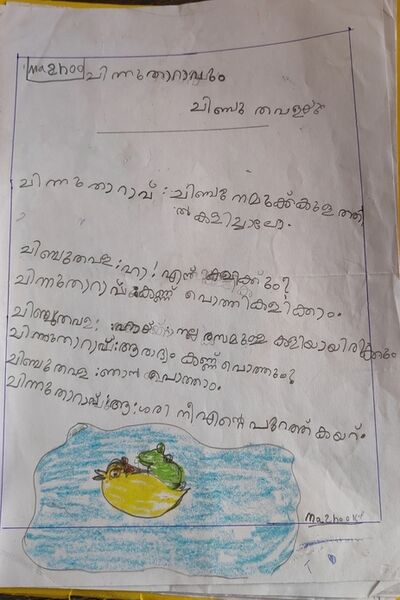 Mazhoo
ചിന്നുതാറാവും
ചിഞ്ചു തവളക്കു
ചിന്നുതാറാവ് : ചിഞ്ചു നമുക്ക്കുളത്തി
ൽ കളിച്ചാലോ.
ചിഞ്ചുതവള:ഹാ! എന്ത് കളിക്കും?
ചിന്നുതാറാവ്: കണ്ണ് പൊത്തികളിക്കാം.
ചിഞ്ചുതവള: നല്ല രസമുള്ള കളിയായിരിക്കും
ചിന്നുതാറാവ്:ആരാദ്യം കണ്ണ് പൊത്തും?
ചിഞ്ചുതവള :ഞാൻ പൊത്താം.
ചിന്നുതാറാവ്:ആ!ശരി നീഎൻ്റെ പുറത്ത് കയറ്.